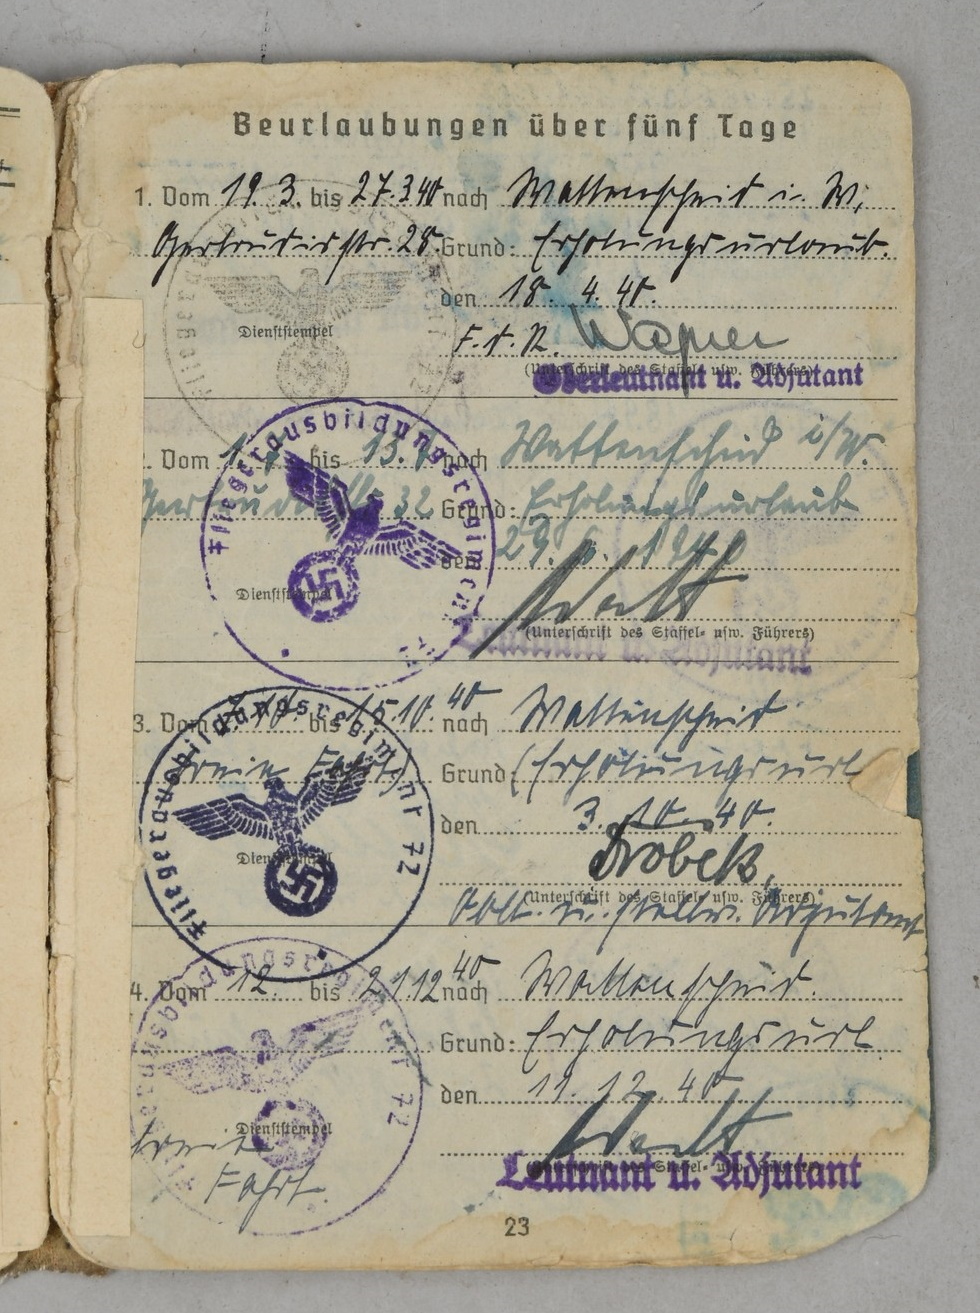 Beurlaubungen über fünf Tage
1. Vom 19. 3. bis 27.3.40 nach Wattenscheid i. W.
Gertrudisstr. 28. Grund: Erholungsurlaub.
den 18. 4. 40.
Dienststempel
F. d. R.
(Unterschrift des Staffel- usw. Führers)
Oberleutnant u. Adjutant
2. Vom bis 13. nach Wattenscheid i/W.
32 Grund: Erholungsurlaub
den 29. 1940
Fliegerausbildungsregiment 72
Dienststempel
(Unterschrift des Staffel- usw. Führers)
Leutnant u. Adjutant
3. Vom bis 15.10.40 nach Wattenscheid
Freie Fahrt Grund: Erholungsurl
den 3. 10. 40.
Fliegerausbildungsregiment 72
Dienststempel
(Unterschrift des Staffel- usw. Führers)
Oblt. u. stellv. Adjutant
4. Vom 12. bis 21.12.40 nach Wattenscheid.
Grund: Erholungsurl.
den 11. 12. 40
Fliegerausbildungsregiment 72
Dienststempel
Freie
Fahrt.
(Unterschrift des Staffel- usw. Führers)
Leutnant u. Adjutant
23